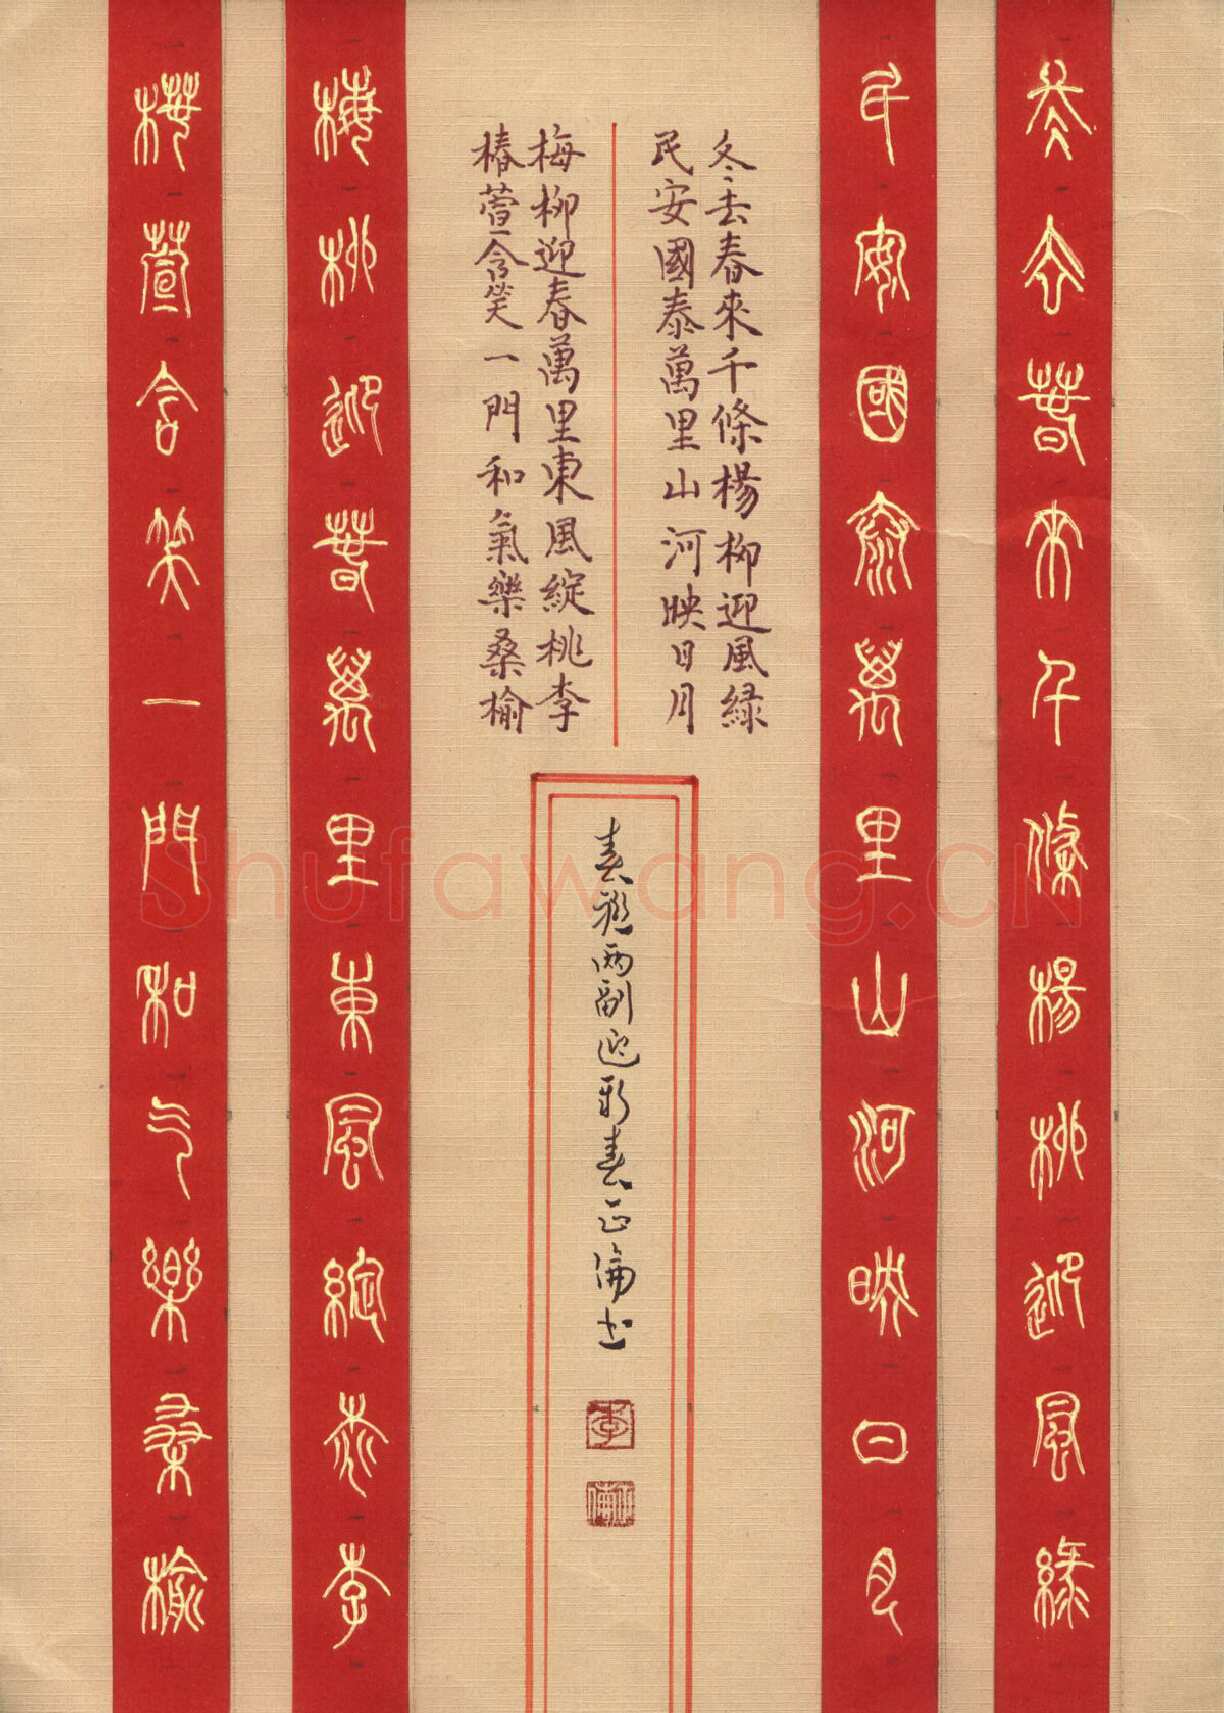 冬去春來千條楊柳迎風緑
民安國泰萬里山河映日月
冬去春來千條楊柳迎風緑
民安國泰萬里山河映日月
梅柳迎春萬里東風綻桃李
椿萱含笑一門和氣樂桑榆
春聯两副迎新春正倫书
李
正倫
梅柳迎春萬里東風綻桃李
椿萱含笑一門和气樂桑榆
Shufawang.CN